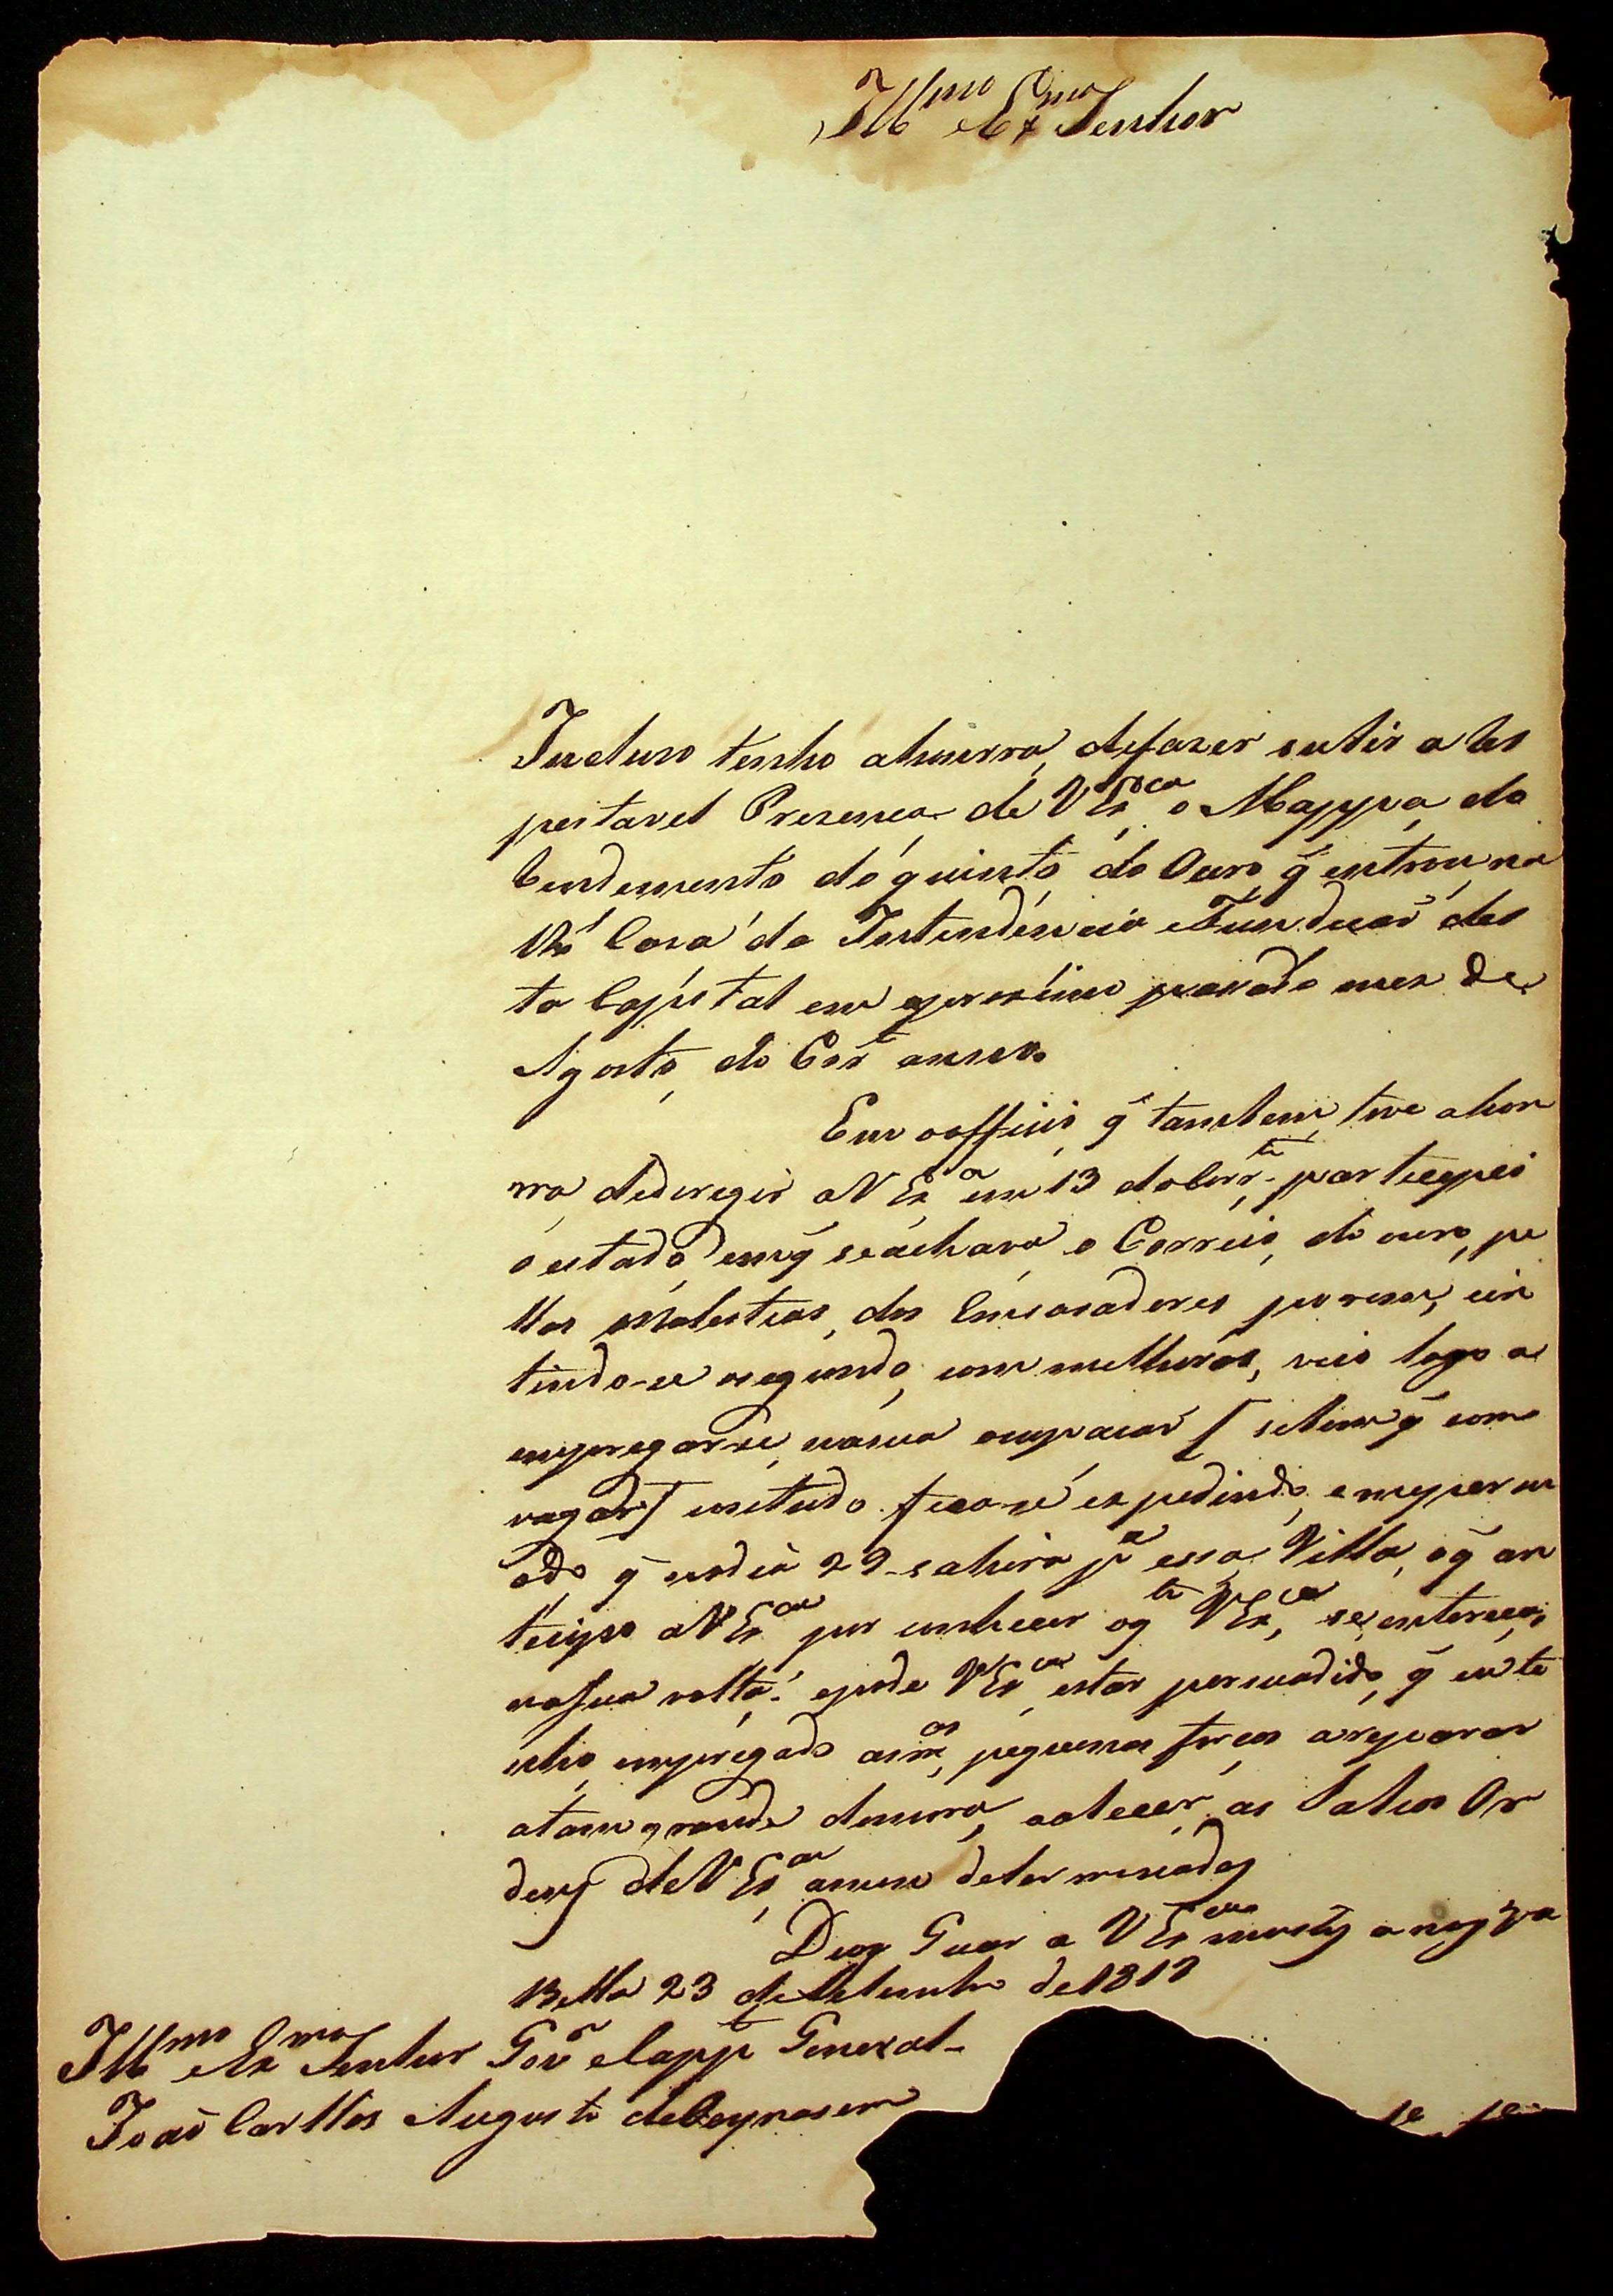 Ill.mo e Ex.mo Senhor
Incluso tenho ahonrra, defazer subir a Res
peitavel Prezença de V Ex.cia o Mappa do
Rendemento do quinto do Ouro q̃ entrou na
R.l Caza da Intendencia eFundicaõ des
ta Cappital em oproximo passado mes de
Agosto do Corr.e anno.
Em oofficio q̃ tambem tive ahon
rra dederegir a V Ex.a em 13 do Corr.te partecipei
o estado emq̃ seachava o Correio do ouro, pe
llas mollestias dos Ensaiadores porem, sin
tindo-se osegundo com melhoras, veio logo a
empregarse nasua ocupacaõ [ sebem q̃ com
vagar ] contudo ficase expedindo, emepersu
ado q̃ nodia 29 sahira p.a essa Villa, oq̃ an
tecipo a V Ex.ca por conhecer oq.to V Ex.ca se enteressa
nasua volta: epode V Ex.ca estar persuadido q̃ eu te
nho empregado as m.as pequenas forças areparar
atam grande demora, eobecer as Sabias Or
dens de V Ex.ca amim determinadas
Deos Guar a V Ex.cia muitos annos V.a
Bella 23 de Setembro de 1818
Ill.mo e Ex.mo Senhor Gov.or eCapp.m General
Joaõ Carllos Augusto deOeynasem